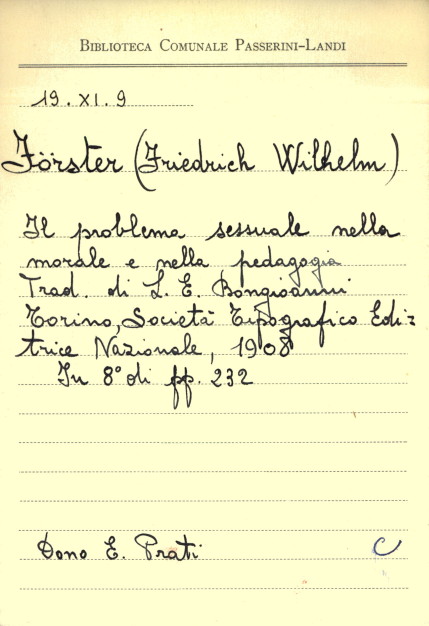 Biblioteca Comunale Passerini-Landi
19.XI.9
Förster (Friedrich Wilhelm)
Il problema sessuale nella
morale e nella pedagogia
Trad. di L. E. Bongioanni
Torino, Società Tipografico Edi=
trice Nazionale, 1908
In 8° di pp. 232
Dono E. Prati
C